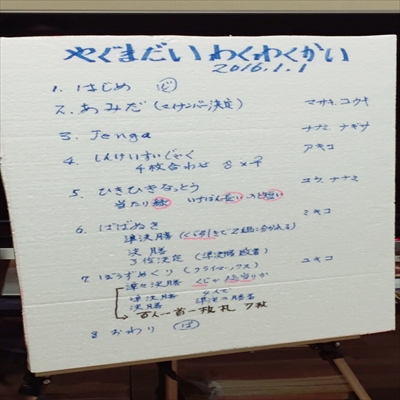 やぐまだい わくわくかい
2016.1.1
1. はじめ ㋪
2. あみだ (マイナンバー決定) マサキ、コウキ
3. Jenga ナナミ、ナギサ
4. しんけいすいじゃく アキコ
4枚合わせ 8×
5. ひきひきなっとう ユウ、ナナミ
当たり 緑 いちばん長い、 短い
6. ばばぬき ミキコ
準決勝 (くじ引きで2組に分かれる)
決勝
3位決定 (準決勝敗者)
7. ぼうずめくり (クライマックス) ユキコ
準々決勝 くじ
準決勝 4人で
決勝 準決の勝者
百人一首一枚札 7枚
8 おわり